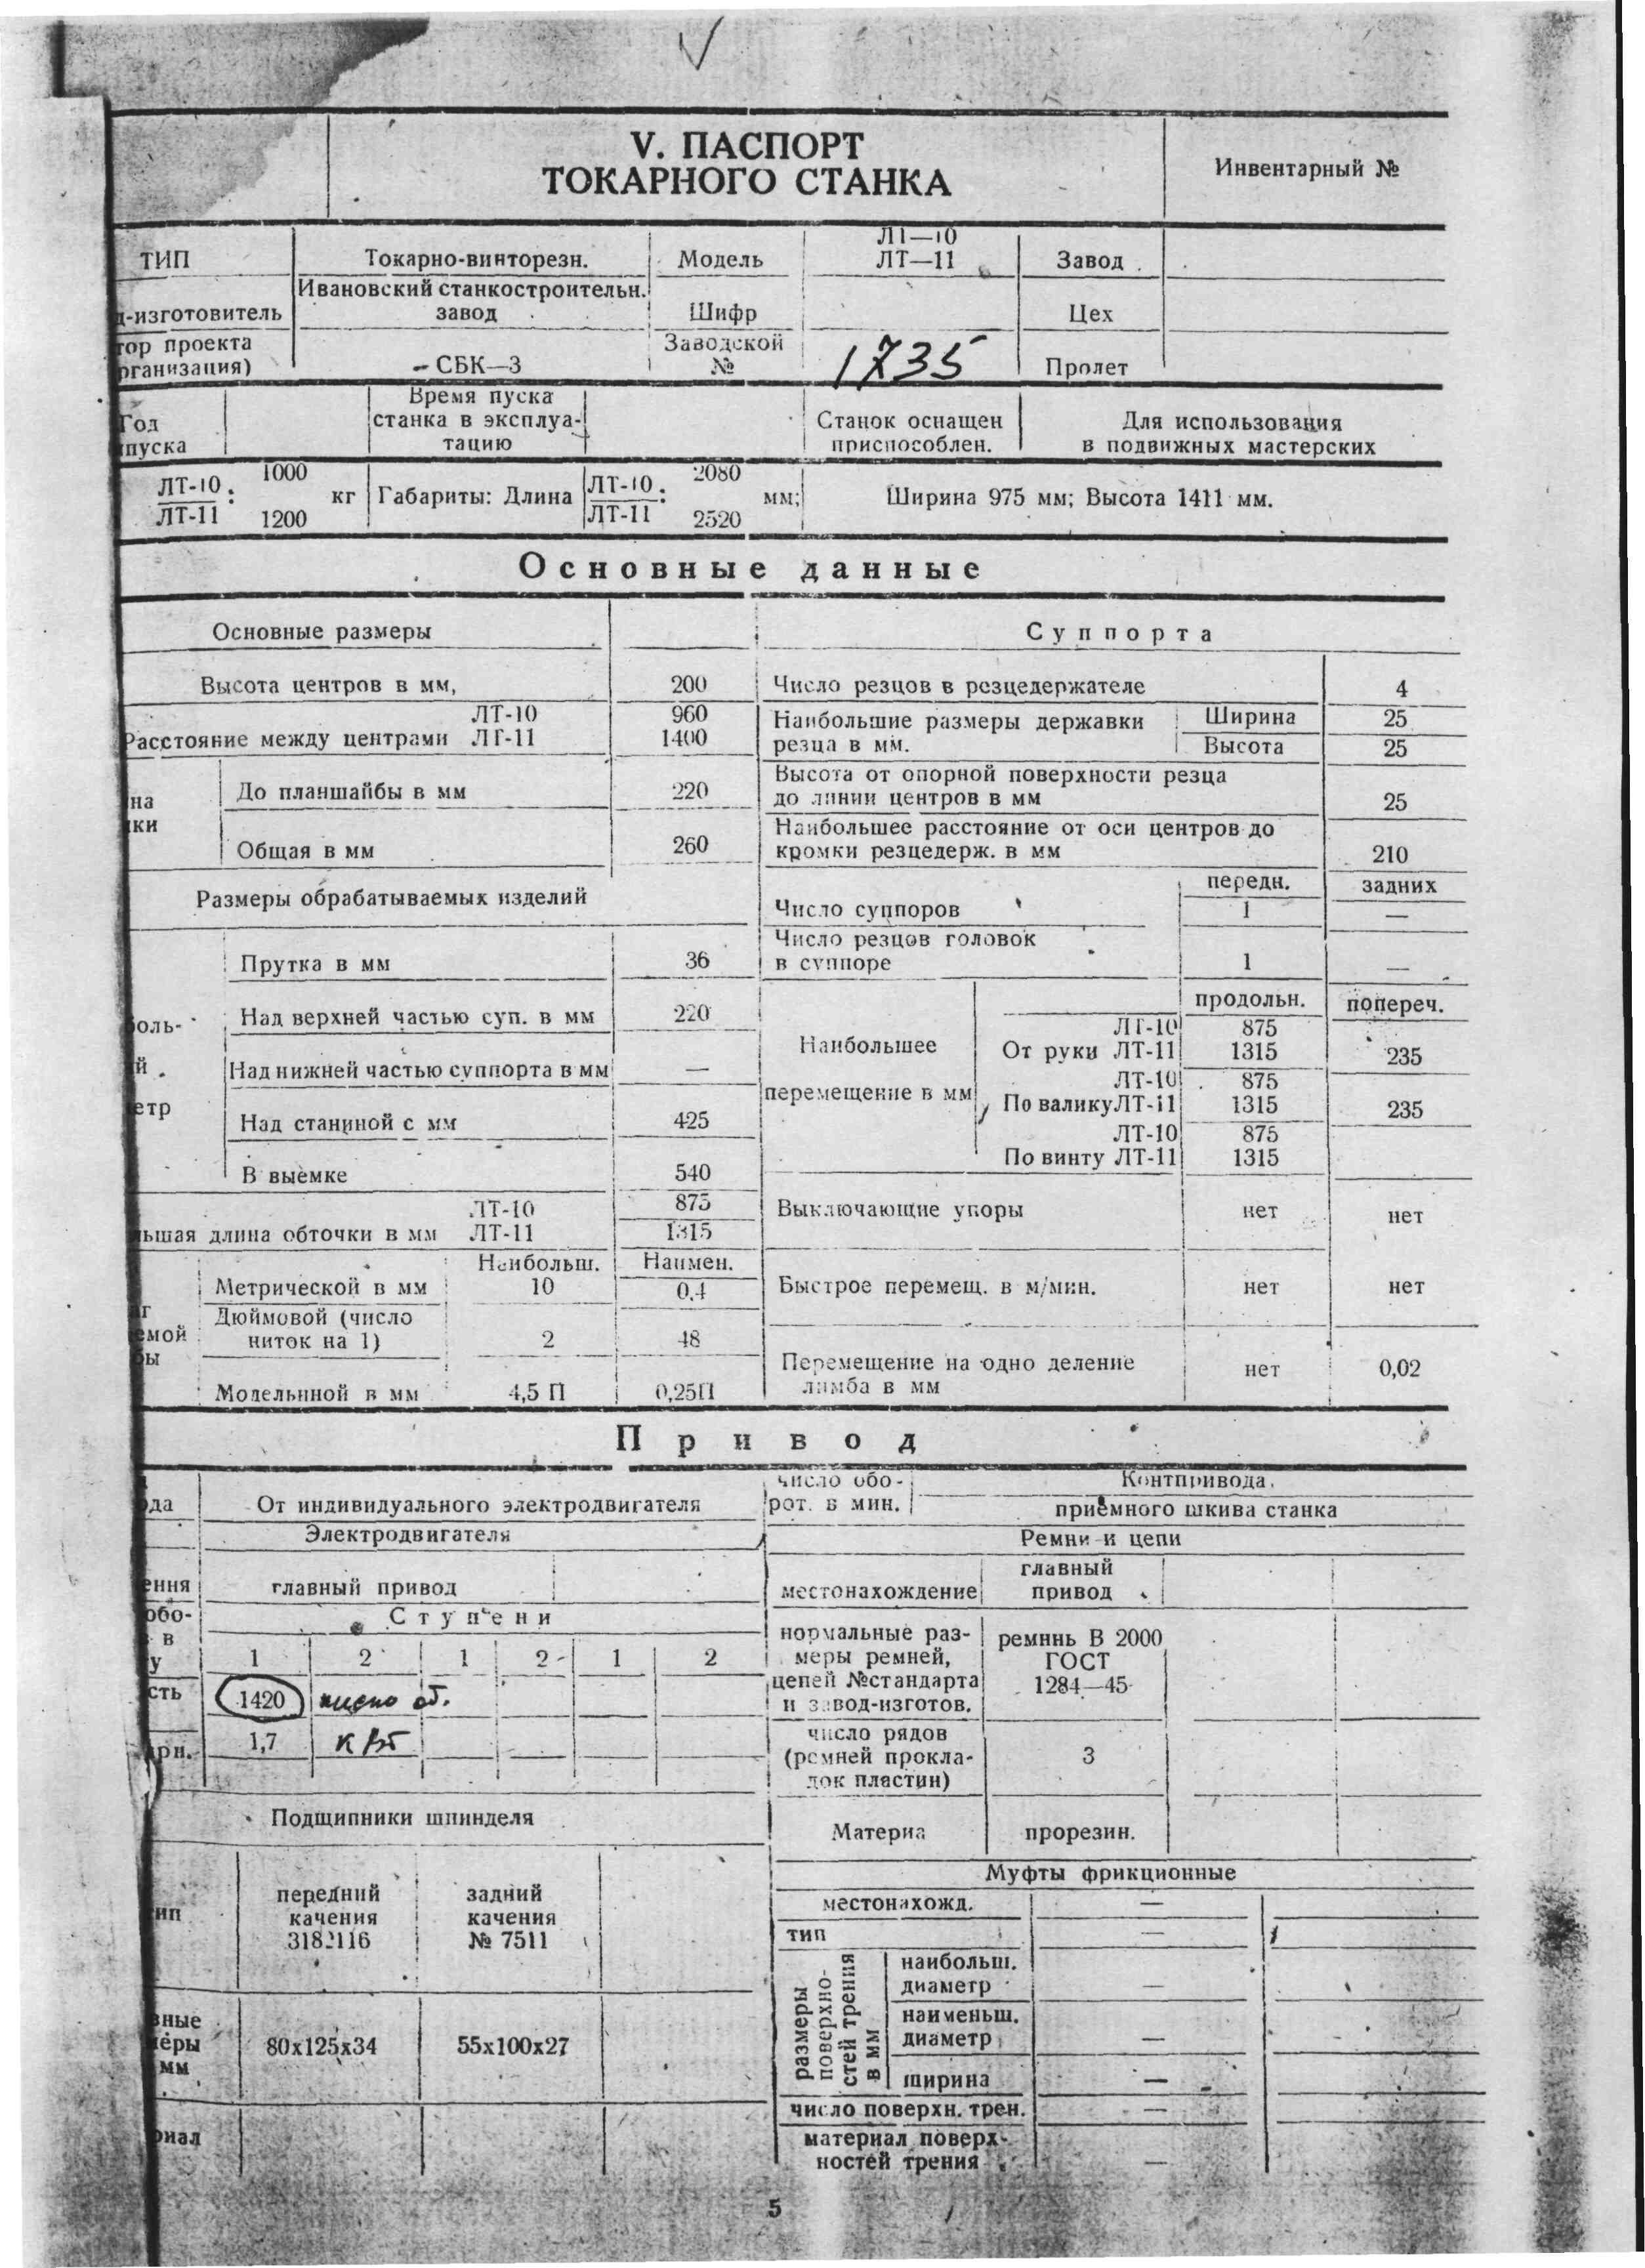 V. ПАСПОРТ
ТОКАРНОГО СТАНКА
Инвентарный №
ТИП
Токарно-винторезн.
Модель
ЛТ—10
ЛТ—11
Завод
-изготовитель
Ивановский станкостроительн.
завод
Шифр
Цех
тор проекта
рганизация)
СБК—3
Заводской
№
1735
Пролет
Год
пуска
Время пуска
станка в эксплуа-
тацию
Станок оснащен
приспособлен.
Для использования
в подвижных мастерских
ЛТ-10 : 1000
ЛТ-11 1200
кг
Габариты: Длина
ЛТ-10 : 2080
ЛТ-11 2520
мм;
Ширина 975 мм; Высота 1411 мм.
Основные данные
Основные размеры
Высота центров в мм, 200
ЛТ-10 960
Расстояние между центрами ЛТ-11 1400
на
ки
До планшайбы в мм 220
Общая в мм 260
Размеры обрабатываемых изделий
Прутка в мм 36
Над верхней частью суп. в мм 220
боль-
й
етр
Над нижней частью суппорта в мм —
Над станиной с мм 425
В выемке 540
ЛТ-10 875
ьшая длина обточки в мм ЛТ-11 1315
Наибольш. Наимен.
Метрической в мм 10 0,4
г
емой
бы
Дюймовой (число
ниток на 1) 2 48
Модельнной в мм 4,5 П 0,25П
Суппорта
Число резцов в резцедержателе 4
Наибольшие размеры державки
резца в мм.
Ширина 25
Высота 25
Высота от опорной поверхности резца
до линии центров в мм 25
Наибольшее расстояние от оси центров до
кромки резцедерж. в мм 210
передн. задних
Число суппоров 1 —
Число резцов головок
в суппоре 1 —
продольн. попереч.
Наибольшее
перемещение в мм
ЛТ-10 875
От руки ЛТ-11 1315 235
ЛТ-10 875
По валику ЛТ-11 1315 235
ЛТ-10 875
По винту ЛТ-11 1315
Выключающие упоры нет нет
Быстрое перемещ. в м/мин. нет нет
Перемещение на одно деление
лимба в мм нет 0,02
Привод
ода
От индивидуального электродвигателя
Электродвигателя
ения
главный привод
обо-
в
у
Ступени
1 2 1 2 1 2
сть
1420 число об.
1,7 кВт
Подшипники шпинделя
ип
передний
качения
3182116
задний
качения
№ 7511
вные
меры
мм
80х125х34
55х100х27
риал
число обо-
рот. в мин.
Контпривода,
приёмного шкива станка
Ремни и цепи
местонахождение
главный
привод
нормальные раз-
меры ремней,
цепей №стандарта
и завод-изготов.
ремннь В 2000
ГОСТ
1284—45
число рядов
(ремней прокла-
док пластин)
3
Материа
прорезин.
Муфты фрикционные
местонахожд. —
тип —
размеры
поверхно-
стей трения
в мм
наибольш.
диаметр —
наименьш.
диаметр —
ширина —
число поверхн. трен. —
материал поверх-
ностей трения —
5